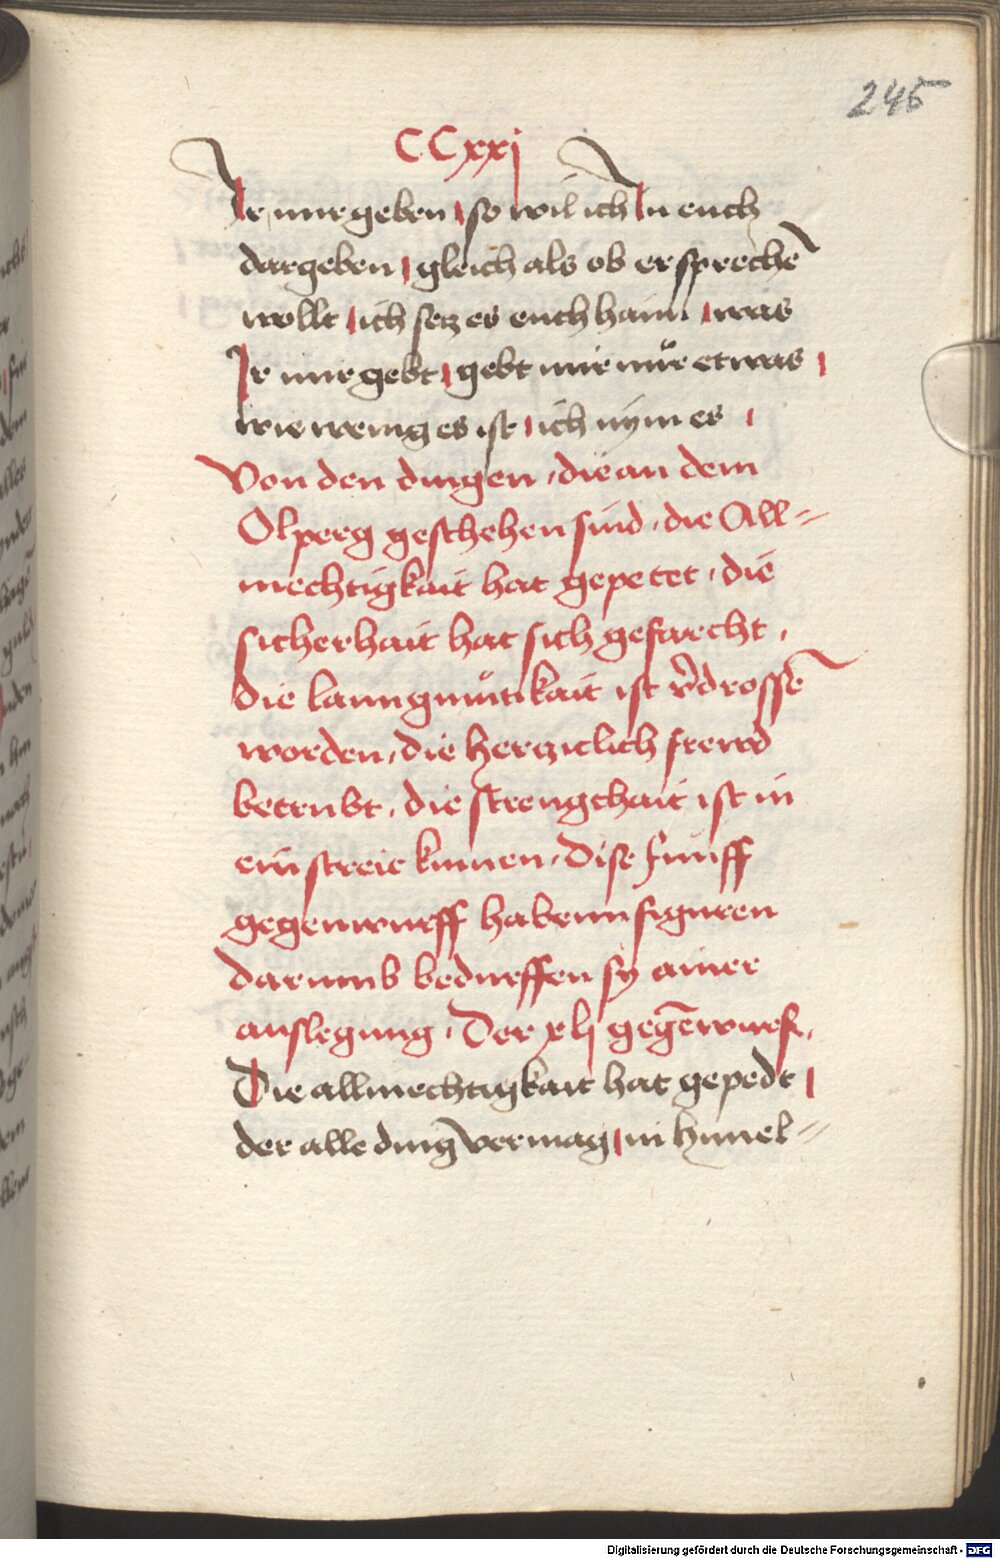 245
CCxxj
Ir mir geben / so wil ich In euch
dargeben / gleich als ob er sprechē
wollt / ich setz es euch haim / was
Ir mir gebt / gebt mir nůr etwas /
wie wenig es ist / ich nÿm es /
Von den dingen, die an dem
Olperg geschehen sind, die All=
mechtigkait hat gepetet, die
sicherhait hat sich gefarcht,
die lanngmůtikait ist v̄drossē
worden, die hertzitlich frewd
betrubt, die strengkhait ist in
ein streit kumen, Dise funff
gegenwurff habenn figuren
darumb bedurffen sy ainer
auslegung, Der xlj gegēwurf,
Die allmechtigkait hat gepedt /
der alle ding vermag / in hymel=
Digitalisierung gefördert durch die Deutsche Forschungsgemeinschaft - DFG